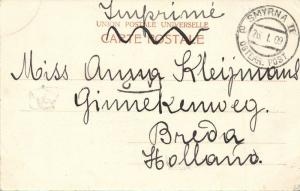 Imprimé
UNION POSTALE UNIVERSELLE
CARTE POSTALE
SMYRNA II
26.1.09
OSTERR. POST
Miss Anna Kleijmans
Ginnekenweg.
Breda
Holland.